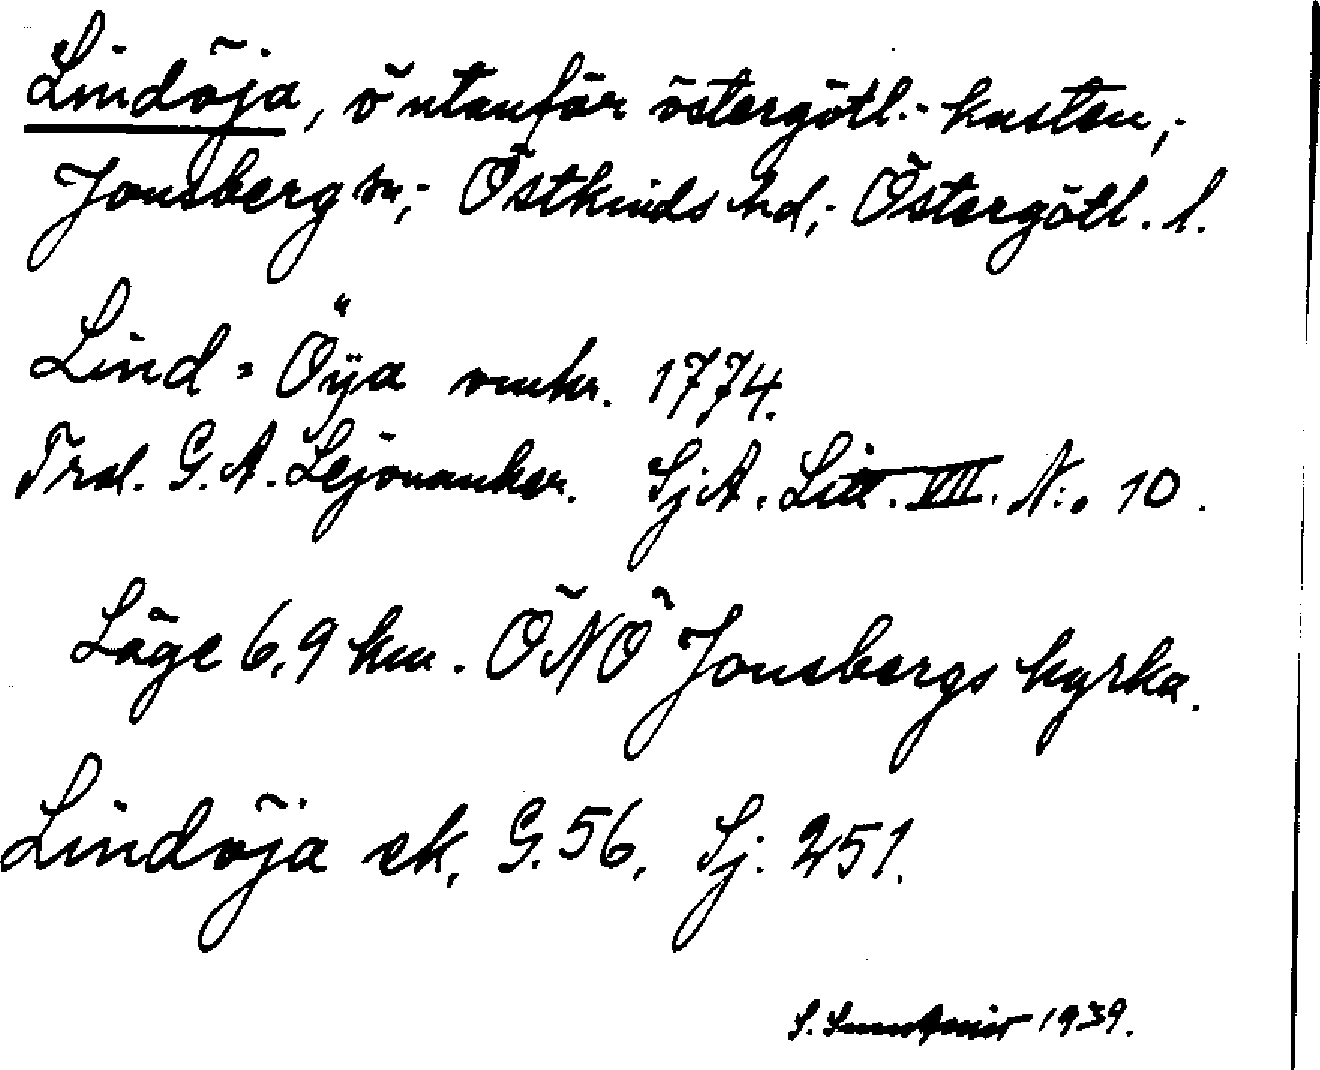 Lindöja, ö utanför östergötl.- kusten,-
Jonsberg sn,- Östkinds hd,- Östergötl. l.
Lind = Öÿa omkr. 1774.
Trol. G. A. Lejonanker. SjA. Litt. VII. N:o 10.
Läge 6,9 km. ÖNÖ Jonsbergs kyrka.
Lindöja ek. G. 56. Sj. 251.
S. 1939.